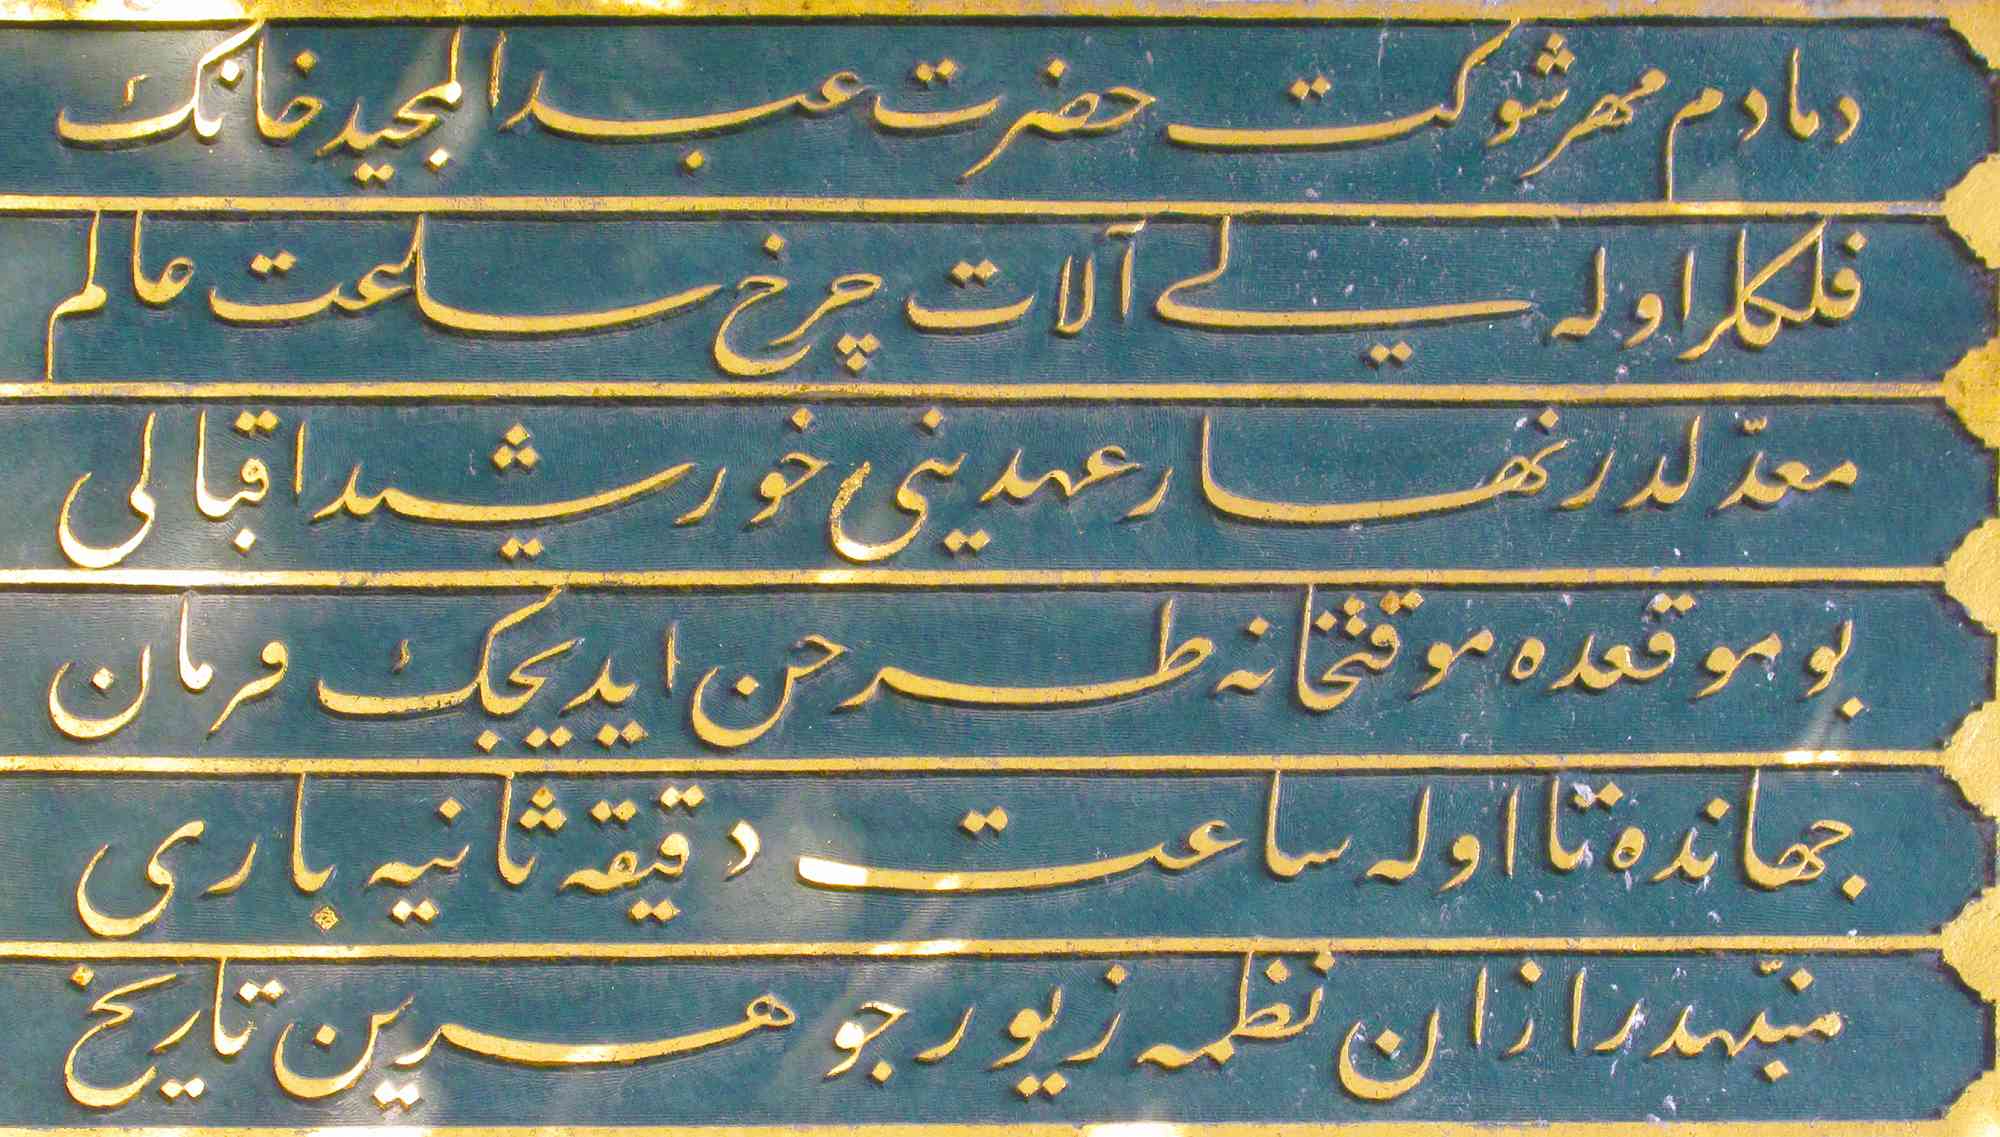 دمادم مهر شوكت حضرت عبد المجيد خانك
فلكلر اوله يلى آلات چرخ ساعت عالم
معدّلدر نهار عهدينى خورشيد اقبالى
بو موقعده موقتخانه طرحن ايديجك فرمان
جهانده تا اوله ساعت دقيقه ثانيه بارى
منبّهدر اذان نظمه زيور جوهرين تاريخ